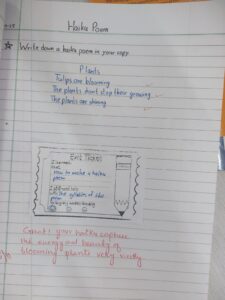 Haiku Poem
Write down a haiku poem in your copy.
Plants
Tulips are blooming
The plants don't stop their growing
The plants are shining
Exit Ticket
I learned
that
How to make a haiku
poem
the syllables of the
poem
Great! your haiku capture
the energy and beauty of
blooming plants very nicely